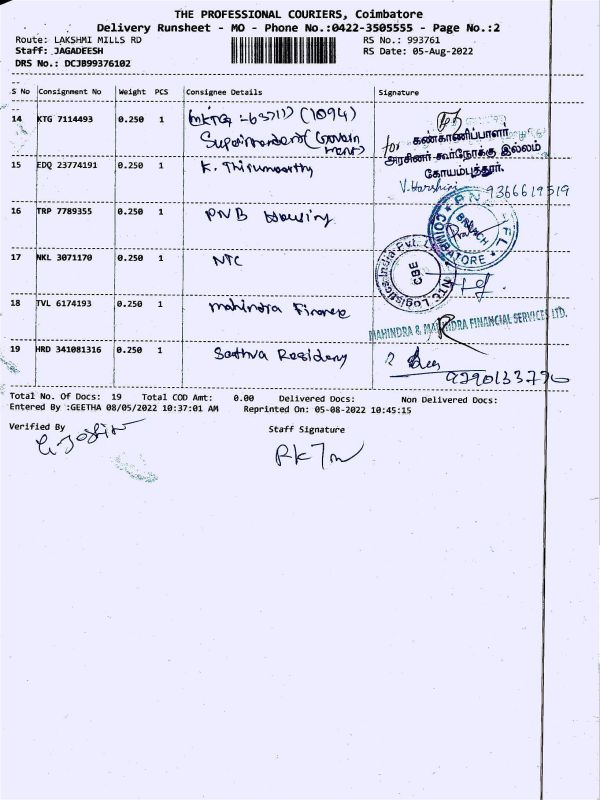 THE PROFESSIONAL COURIERS, Coimbatore
Delivery Runsheet - MO - Phone No.:0422-3505555 - Page No.:2
Route: LAKSHMI MILLS RD
RS No.: 993761
Staff: JAGADEESH
RS Date: 05-Aug-2022
DRS No.: DCJB99376102
S No Consignment No Weight PCS Consignee Details Signature
14 KTG 7114493 0.250 1 (1094)
Superintendent (Govern
ment)
for கண்காணிப்பாளர்
அரசினர் கூர்நோக்கு இல்லம்
கோயம்புத்தூர்.
15 EDQ 23774191 0.250 1 K. Thirumoorthy V. Harshini 9366619519
16 TRP 7789355 0.250 1 PNB Housing
BRANCH
COIMBATORE
17 NKL 3071170 0.250 1 NTC
NTC Logistics India Pvt. Ltd
CBE
18 TVL 6174193 0.250 1 mahindra Finance
MAHINDRA & MAHINDRA FINANCIAL SERVICES LTD.
19 HRD 341081316 0.250 1 Sathva Residency
Total No. Of Docs: 19 Total COD Amt: 0.00 Delivered Docs: Non Delivered Docs:
Entered By :GEETHA 08/05/2022 10:37:01 AM Reprinted On: 05-08-2022 10:45:15
Verified By
Staff Signature